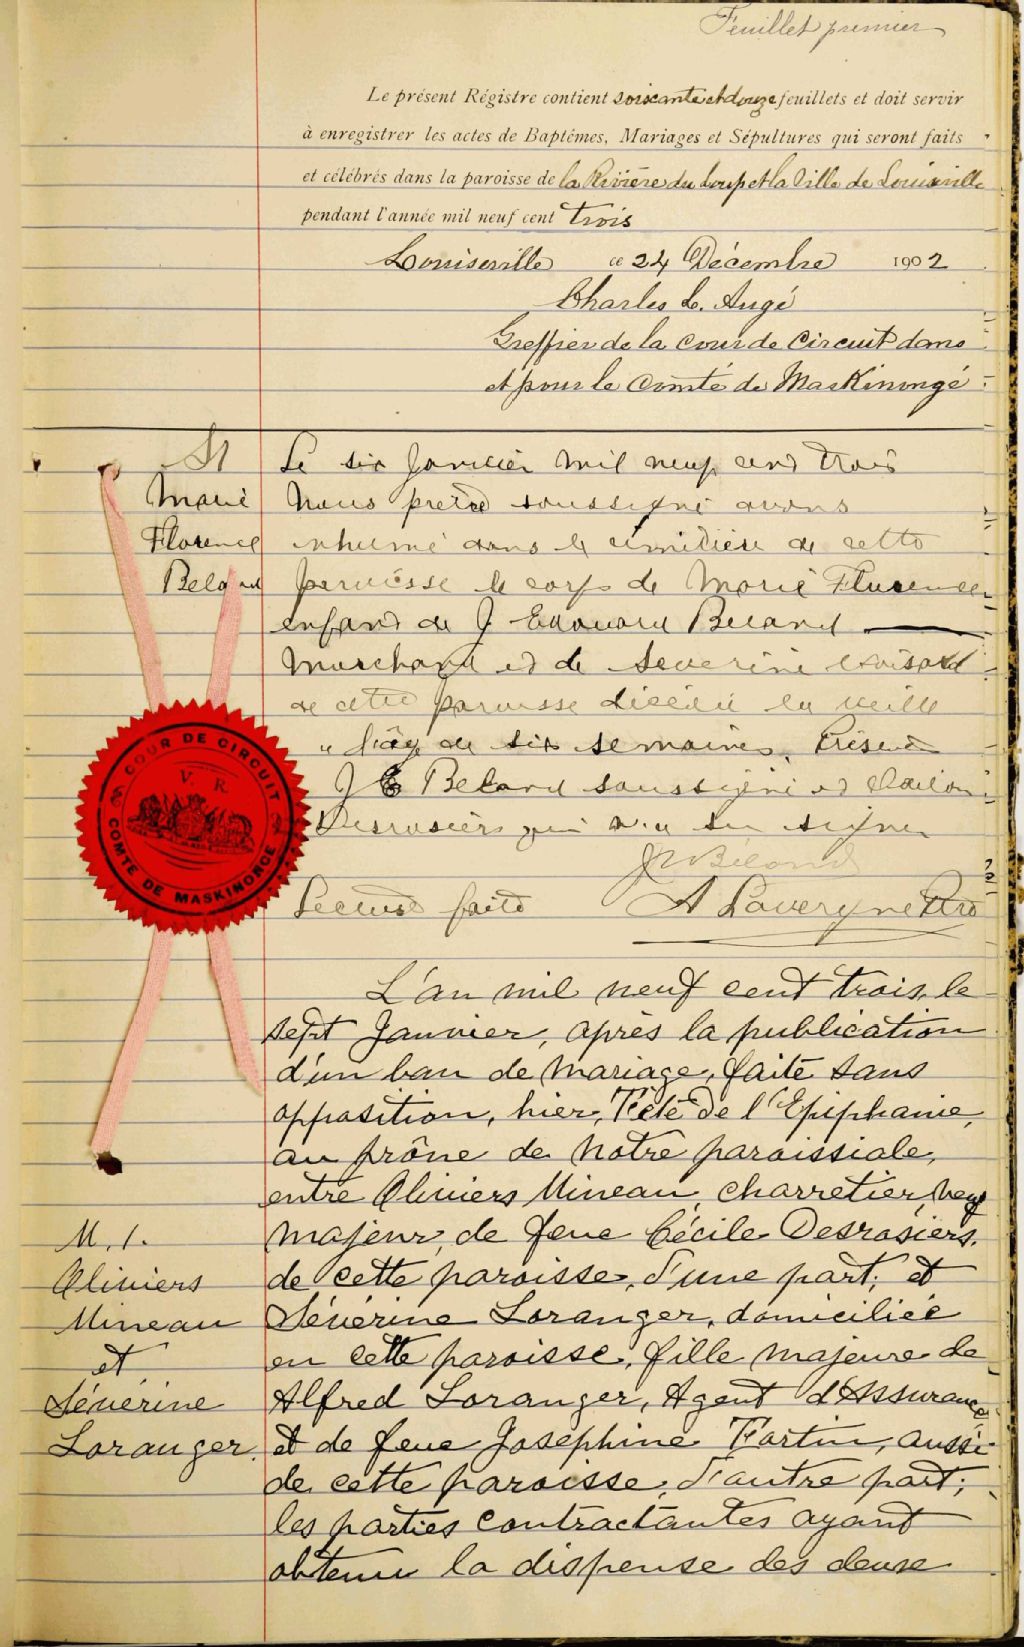 Feuillet premier
Le présent Régistre contient soixante et douze feuillets et doit servir
à enregistrer les actes de Baptêmes, Mariages et Sépultures qui seront faits
et célébrés dans la paroisse de la Rivière du Loup et la Ville de Louiseville
pendant l'année mil neuf cent trois
Louiseville ce 24 Décembre 1902
Charles L. Augé
Greffier de la Cour de Circuit dans
et pour le Comté de Maskinongé
S1
Marie
Florence
Beland
Le six Janvier mil neuf cent trois
Nous pretre soussigné avons
inhumé dans le cimitière de cette
paroisse le corps de Marie Florence
enfant de J Edouard Beland
Marchand et de Severine
de cette paroisse décédée la veille
agée de six semaines. Présents
J E Beland soussigné et
Desrosiers qui n'a su signer
J E Béland
Lecture faite A Lavergne Ptre
COUR DE CIRCUIT
V. R.
COMTÉ DE MASKINONGÉ
M. 1.
Oliviers
Mineau
et
Sévérine
Loranger.
L'an mil neuf cent trois, le
sept Janvier, après la publication
d'un ban de mariage, faite sans
opposition, hier, Fête de l'Epiphanie,
au prône de notre paroissiale,
entre Oliviers Mineau, charretier, veuf
majeur, de feue Cécile Desrosiers,
de cette paroisse, d'une part; et
Sévérine Loranger, domiciliée
en cette paroisse, fille majeure de
Alfred Loranger, Agent d'Assurances
et de feue Joséphine Fortin, aussi
de cette paroisse, d'autre part;
les parties contractantes ayant
obtenu la dispense des deux